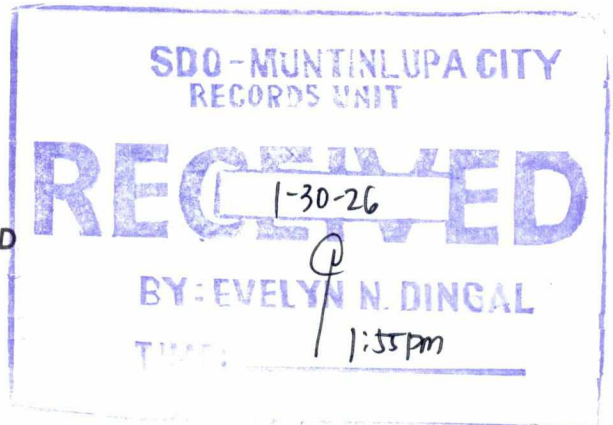 SDO-MUNTINLUPA CITY
RECORDS UNIT
RECEIVED
1-30-26
D
BY: EVELYN N. DINGAL
TIME: 1:55pm